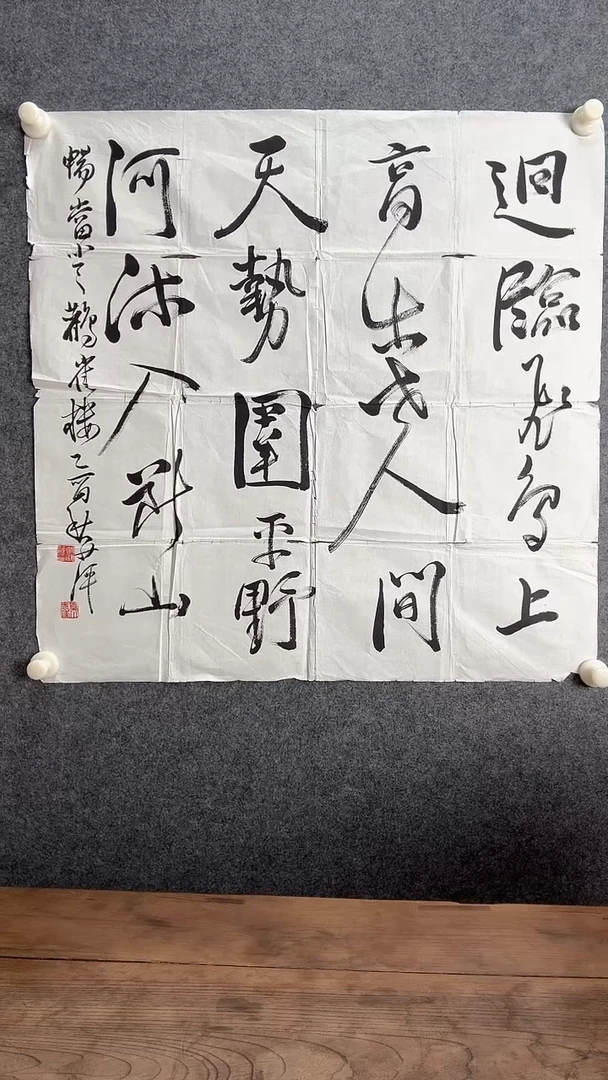 迥臨飛鳥上
高出世人間
天勢圍平野
河流入斷山
暢當登鸛雀樓乙酉秋